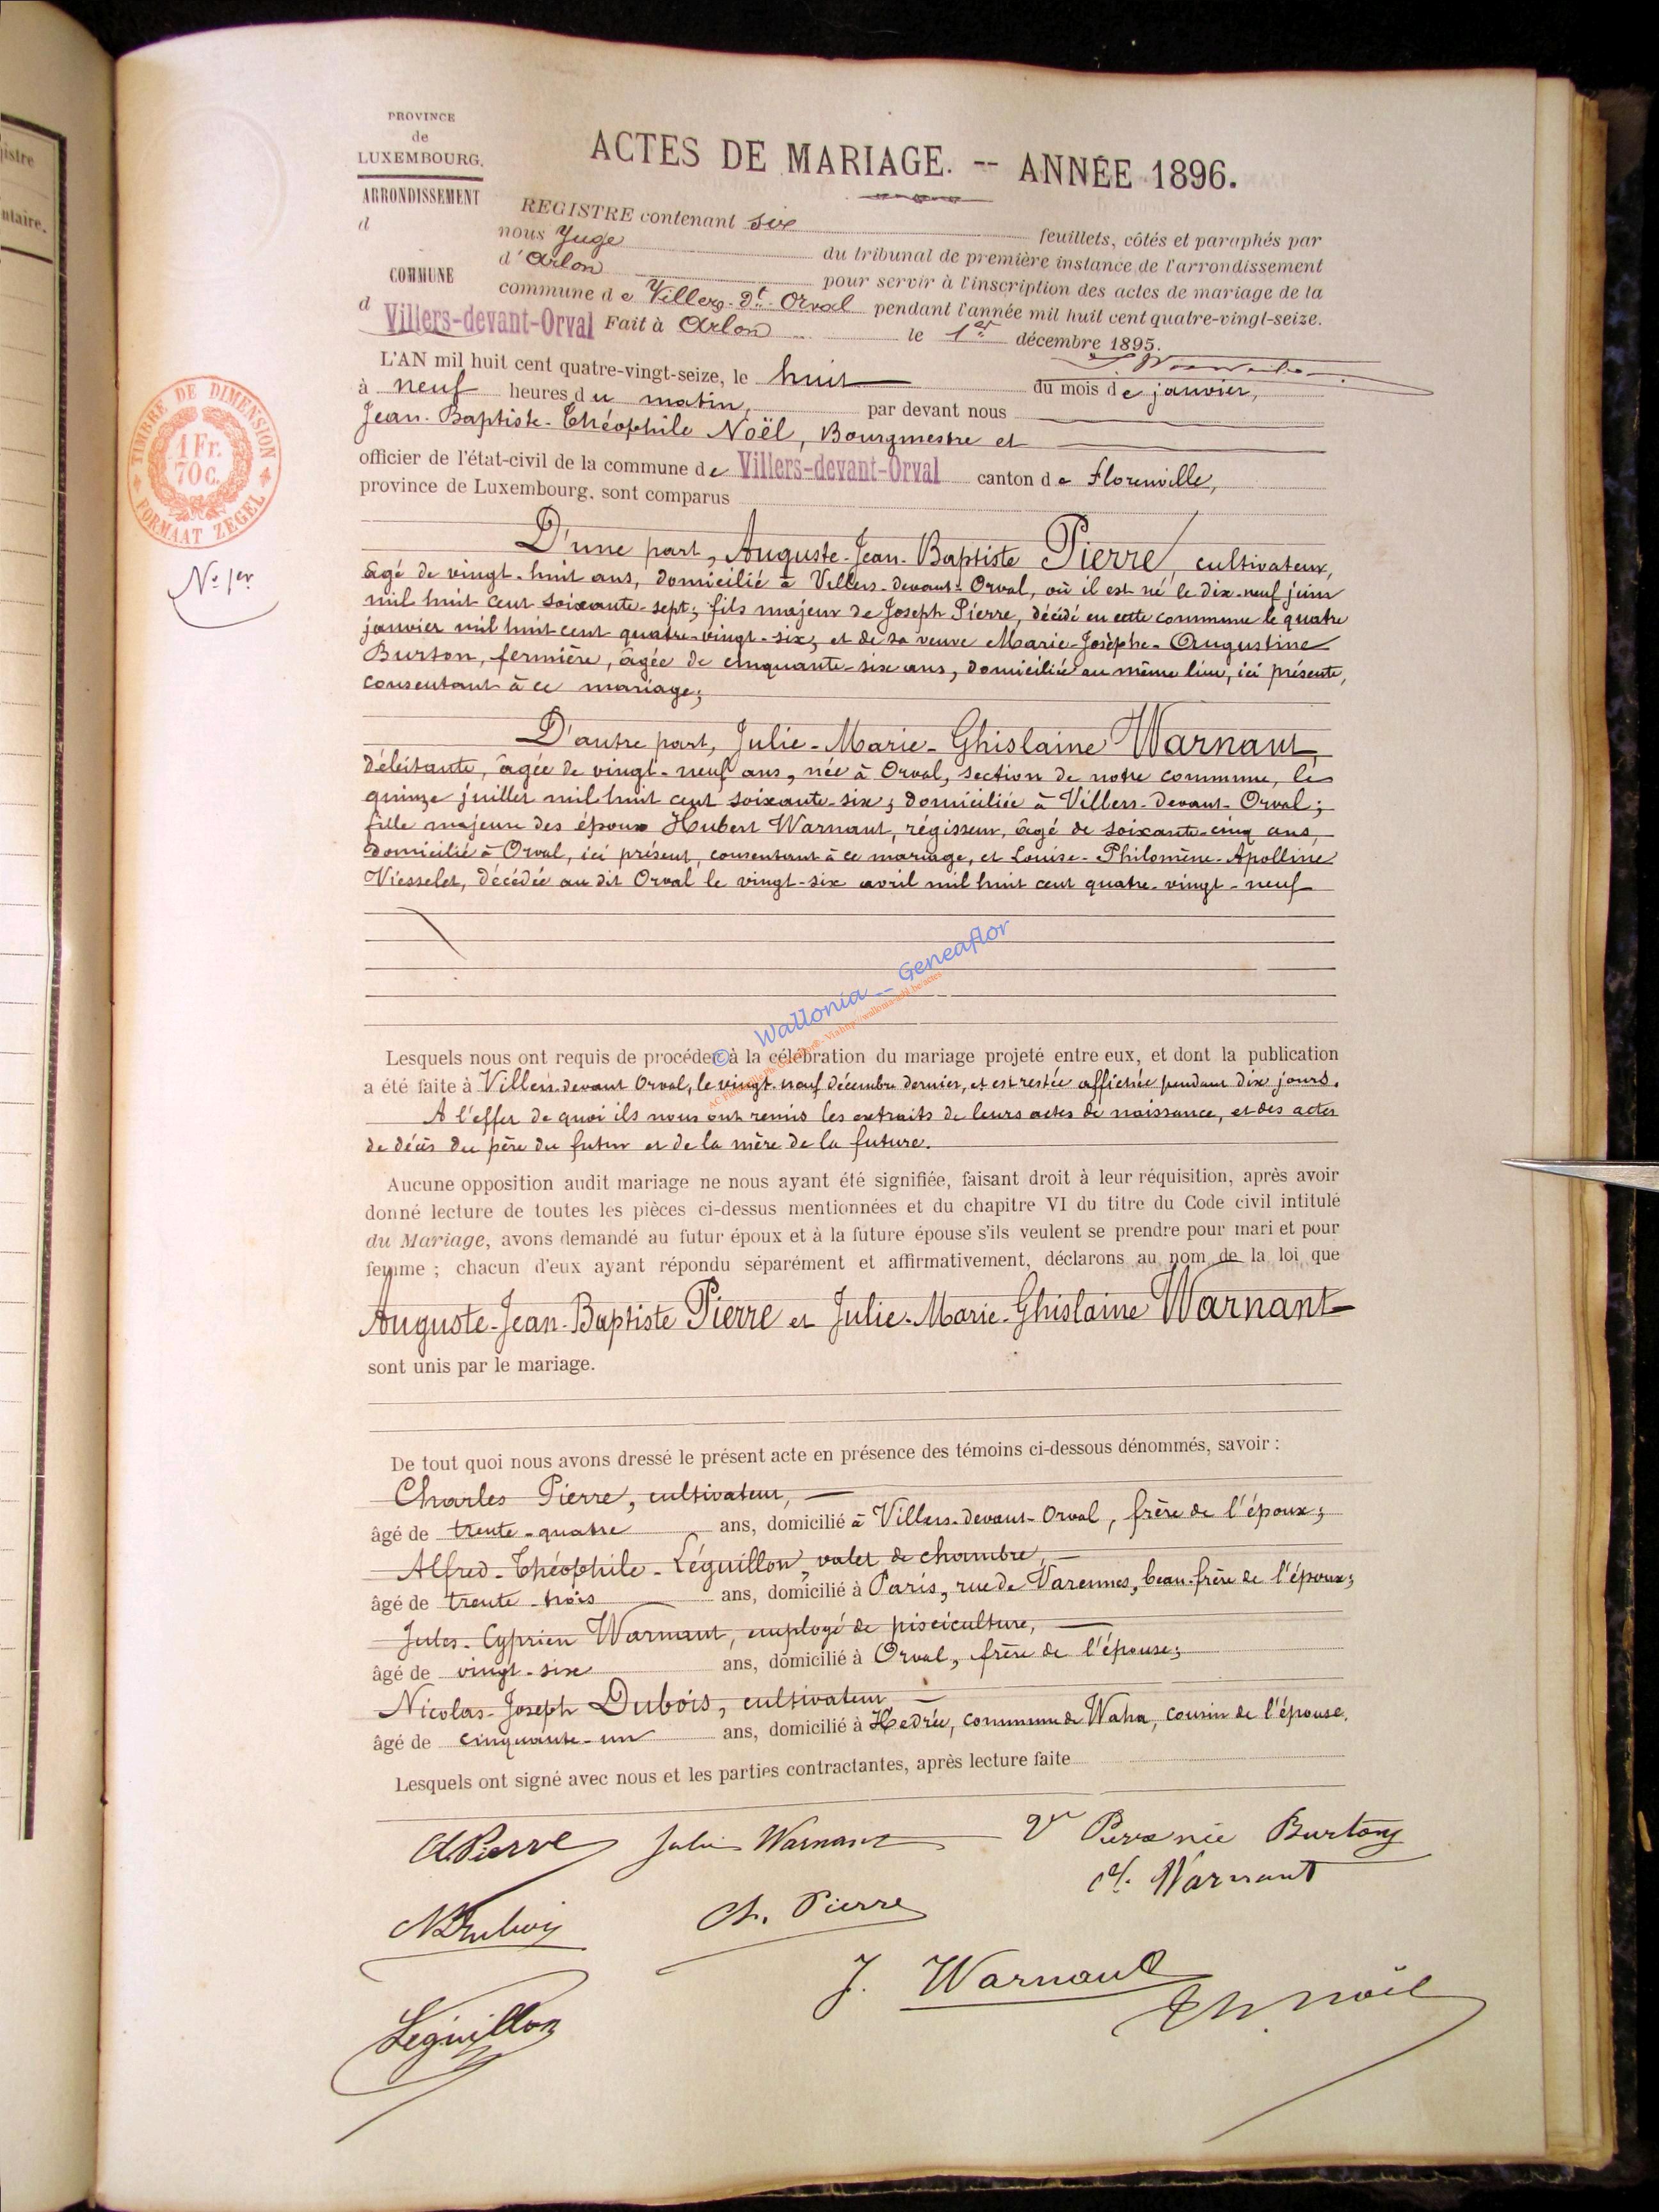 gistre
ntaire.
PROVINCE
de
LUXEMBOURG.
ARRONDISSEMENT
d
COMMUNE
d Villers-devant-Orval
ACTES DE MARIAGE. -- ANNÉE 1896.
REGISTRE contenant six feuillets, côtés et paraphés par
nous Juge du tribunal de première instance de l'arrondissement
d'Arlon pour servir à l'inscription des actes de mariage de la
commune de Villers-dt-Orval pendant l'année mil huit cent quatre-vingt-seize.
Fait à Arlon le 1er décembre 1895.
L'AN mil huit cent quatre-vingt-seize, le huit du mois de janvier,
à neuf heures du matin, par devant nous
Jean-Baptiste-Théophile Noël, Bourgmestre et
officier de l'état-civil de la commune de Villers-devant-Orval canton de Florenville,
province de Luxembourg, sont comparus
TIMBRE DE DIMENSION
1 Fr.
70 c.
FORMAAT ZEGEL
No 1er
D'une part, Auguste-Jean-Baptiste Pierre, cultivateur,
âgé de vingt-huit ans, domicilié à Villers-devant-Orval, où il est né le dix-neuf juin
mil huit cent soixante-sept; fils majeur de Joseph Pierre, décédé en cette commune le quatre
janvier mil huit cent quatre-vingt-six, et de sa veuve Marie-Josèphe-Augustine
Burton, fermière, âgée de cinquante-six ans, domiciliée au même lieu, ici présente,
consentant à ce mariage;
D'autre part, Julie-Marie-Ghislaine Warnant,
débitante, âgée de vingt-neuf ans, née à Orval, section de notre commune, le
quinze juillet mil huit cent soixante-six; domiciliée à Villers-devant-Orval;
fille majeure des époux Hubert Warnant, régisseur, âgé de soixante-cinq ans,
domicilié à Orval, ici présent, consentant à ce mariage, et Louise-Philomène-Apolline
Viesselet, décédée au dit Orval le vingt-six avril mil huit cent quatre-vingt-neuf
© Wallonia -- Geneaflor
Lesquels nous ont requis de procéder à la célébration du mariage projeté entre eux, et dont la publication
a été faite à Villers-devant Orval, le vingt-neuf décembre dernier, et est restée affichée pendant dix jours.
A l'effet de quoi ils nous ont remis les extraits de leurs actes de naissance, et des actes
de décès du père du futur et de la mère de la future.
Aucune opposition audit mariage ne nous ayant été signifiée, faisant droit à leur réquisition, après avoir
donné lecture de toutes les pièces ci-dessus mentionnées et du chapitre VI du titre du Code civil intitulé
du Mariage, avons demandé au futur époux et à la future épouse s'ils veulent se prendre pour mari et pour
femme ; chacun d'eux ayant répondu séparément et affirmativement, déclarons au nom de la loi que
Auguste-Jean-Baptiste Pierre et Julie-Marie-Ghislaine Warnant
sont unis par le mariage.
De tout quoi nous avons dressé le présent acte en présence des témoins ci-dessous dénommés, savoir :
Charles Pierre, cultivateur,
âgé de trente-quatre ans, domicilié à Villers-devant-Orval, frère de l'époux;
Alfred-Théophile-Léguillon, valet de chambre,
âgé de trente-trois ans, domicilié à Paris, rue de Varennes, beau-frère de l'époux;
Jules-Cyprien Warnant, employé de pisciculture,
âgé de vingt-six ans, domicilié à Orval, frère de l'épouse;
Nicolas-Joseph Dubois, cultivateur
âgé de cinquante-un ans, domicilié à Hedrée, commune de Waha, cousin de l'épouse.
Lesquels ont signé avec nous et les parties contractantes, après lecture faite
A Pierre Julie Warnant Ve Pierre née Burton
H. Warnant
N Dubois Ch. Pierre
J. Warnant
Th. Noël
Léguillon